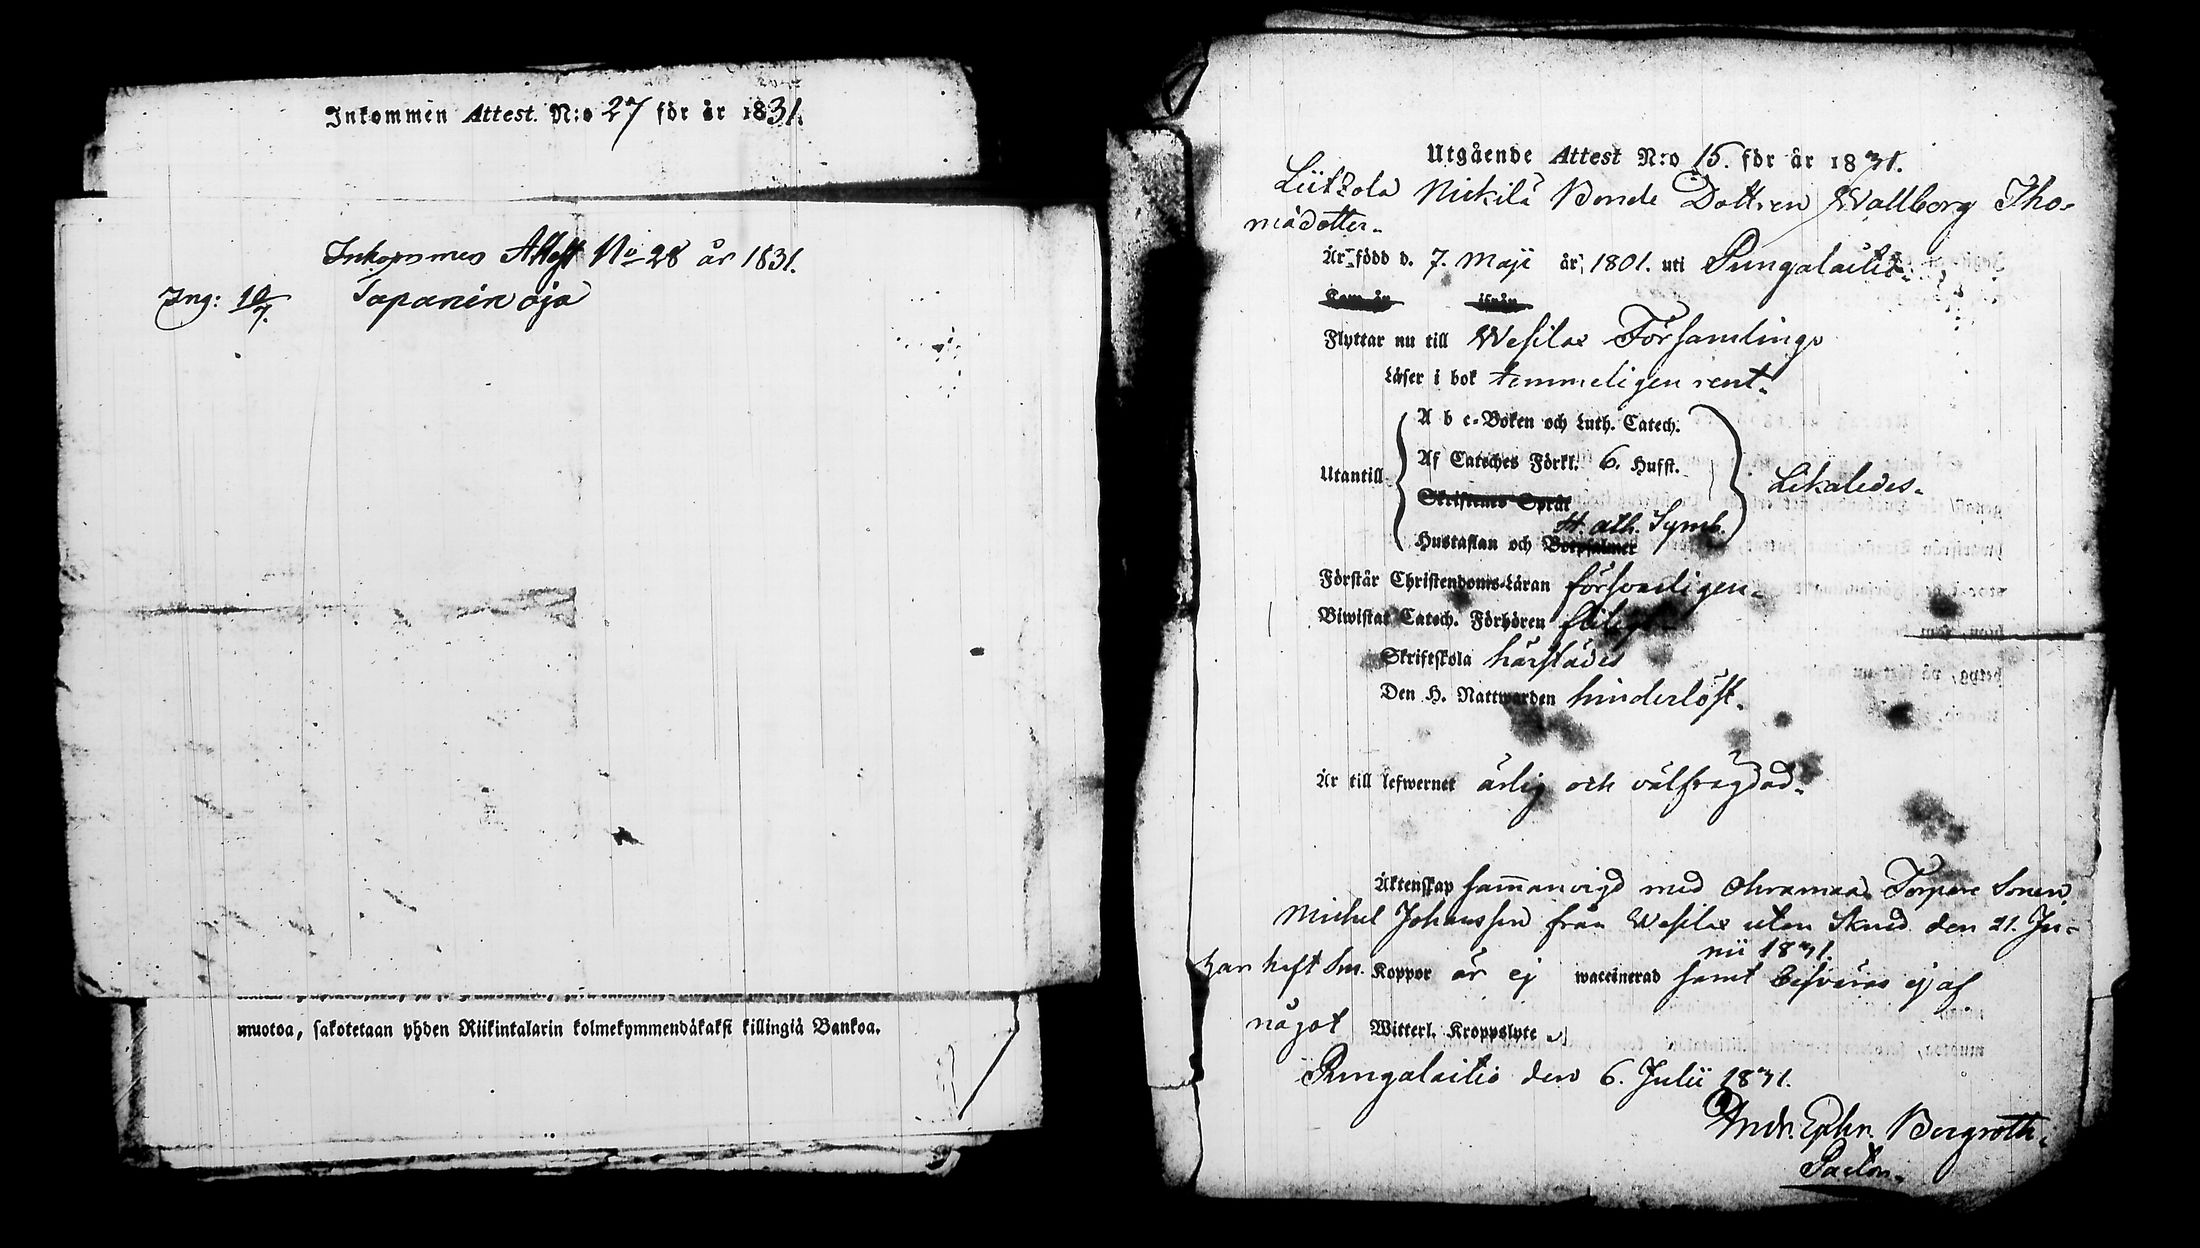 Inkommen Attest. N:o 27 för år 1831.
Inkommes Attest No 28 år 1831.
Ing: 10/7. Tapanin oja
muotoa, sakotetaan yhden Riikintalarin kolmekymmendäkaksi killingiä Bankoa.
Utgående Attest N:o 15. för år 1831.
Liitzola Nickilä Bonde Dottren Wallborg Tho-
madotter.
Är född d. 7. Maji år 1801. uti Pungalaitio
Kom år ifrån
Flyttar nu till Wesilax Församling.
Läser i bok temmeligen rent.
A b c-Boken och Luth. Catech.
Utantill Af Cateches Förkl. 6. Hufst. Likaledes.
Skriftenes Språk
St. ath. Symb.
Hustaflan och Botpsalmer
Förstår Christendoms-Läran försvarligen.
Biwistat Catech. Förhören flitigt
Skriftskola härstädes
Den H. Nattwarden hinderlöst.
Är till lefwernet ärlig och välfrägdad.
Äktenskap sammanvigd med Torpare Sonen
Michel Johansson från Wesilax utan Skud den 21. Ju-
nii 1831.
har haft Sm. Koppor är ej waccinerad samt besväras ej af
något Witterl. Kroppslyte
Pungalaitio den 6. Julii 1831.
Andr. Ephr. Bergroth.
Pastor.